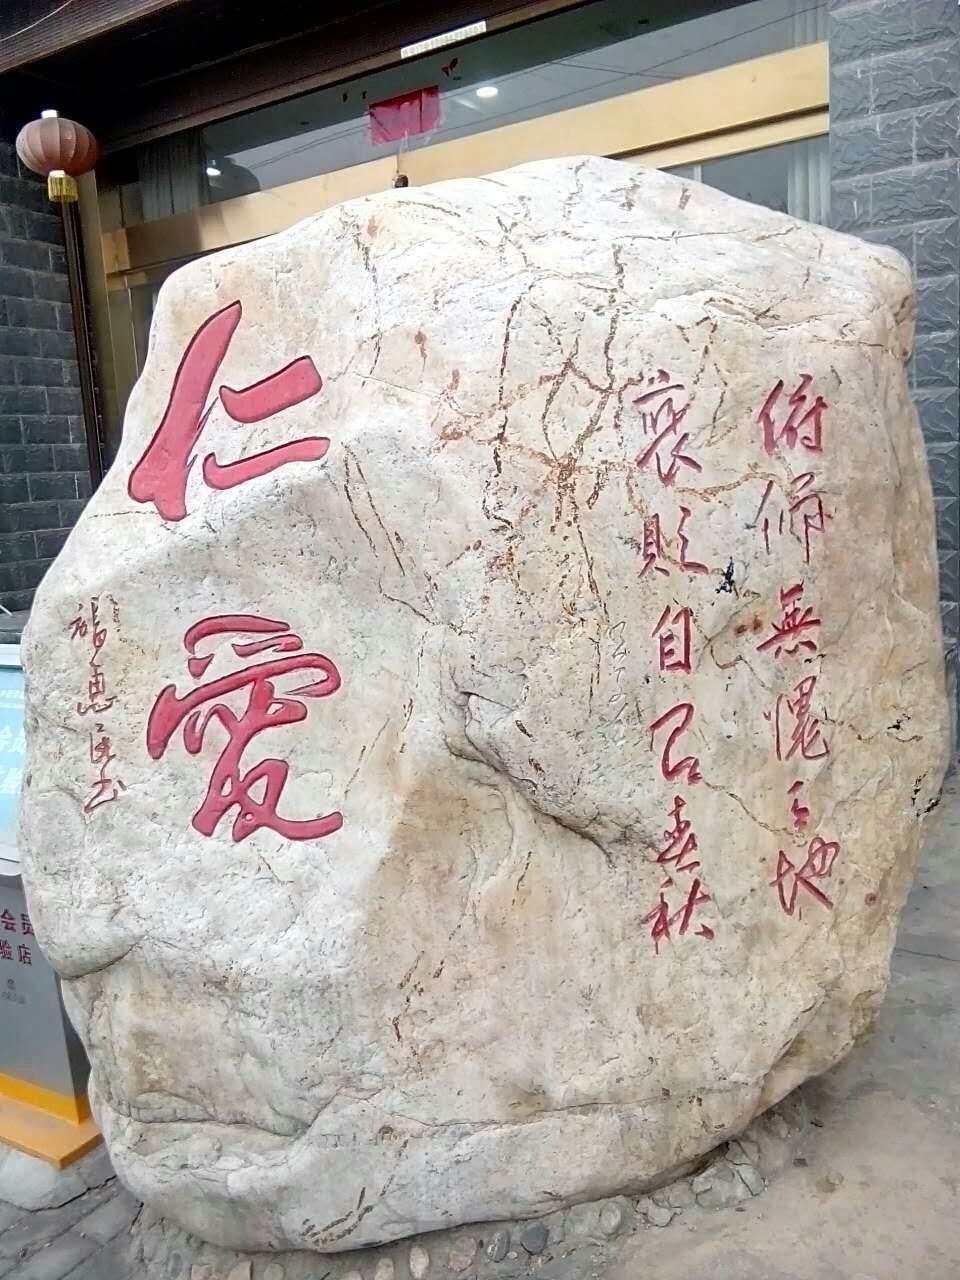 俯仰無愧天地
褒貶自有春秋
仁愛
会员
验店